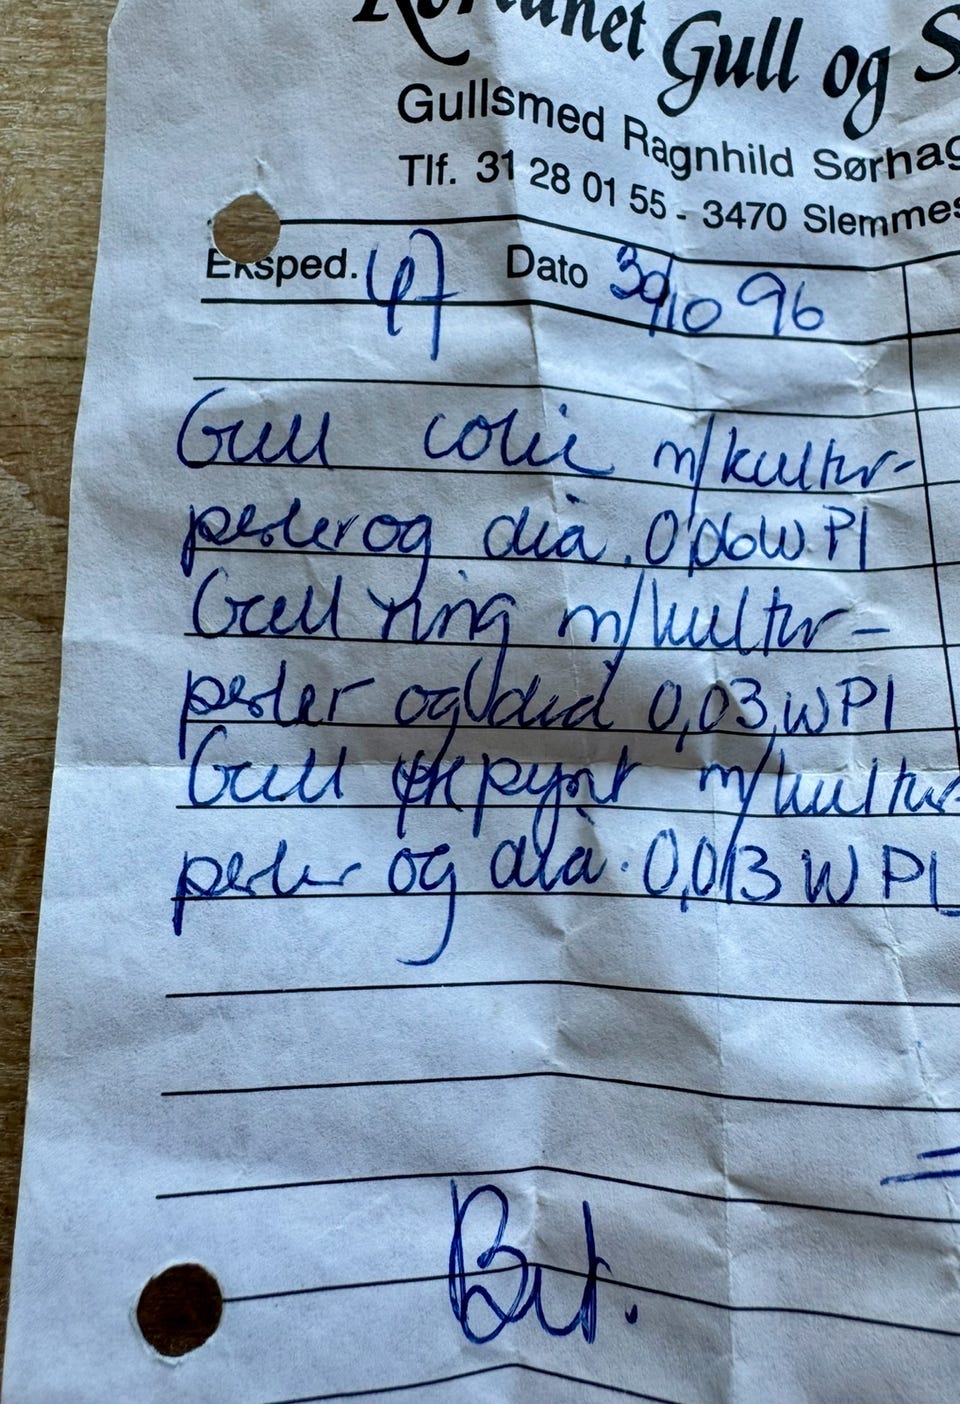 Gull og S
Gullsmed Ragnhild Sørhag
Tlf. 31 28 01 55 - 3470 Slemmes
Eksped. 47 Dato 30/10 96
Gull colie m/kultur-
perler og dia. 0,06 W PI
Gull ring m/kultur-
perler og dia 0,03 W PI
Gull ørepynt m/kultur
perler og dia. 0,013 W PI
Bet.